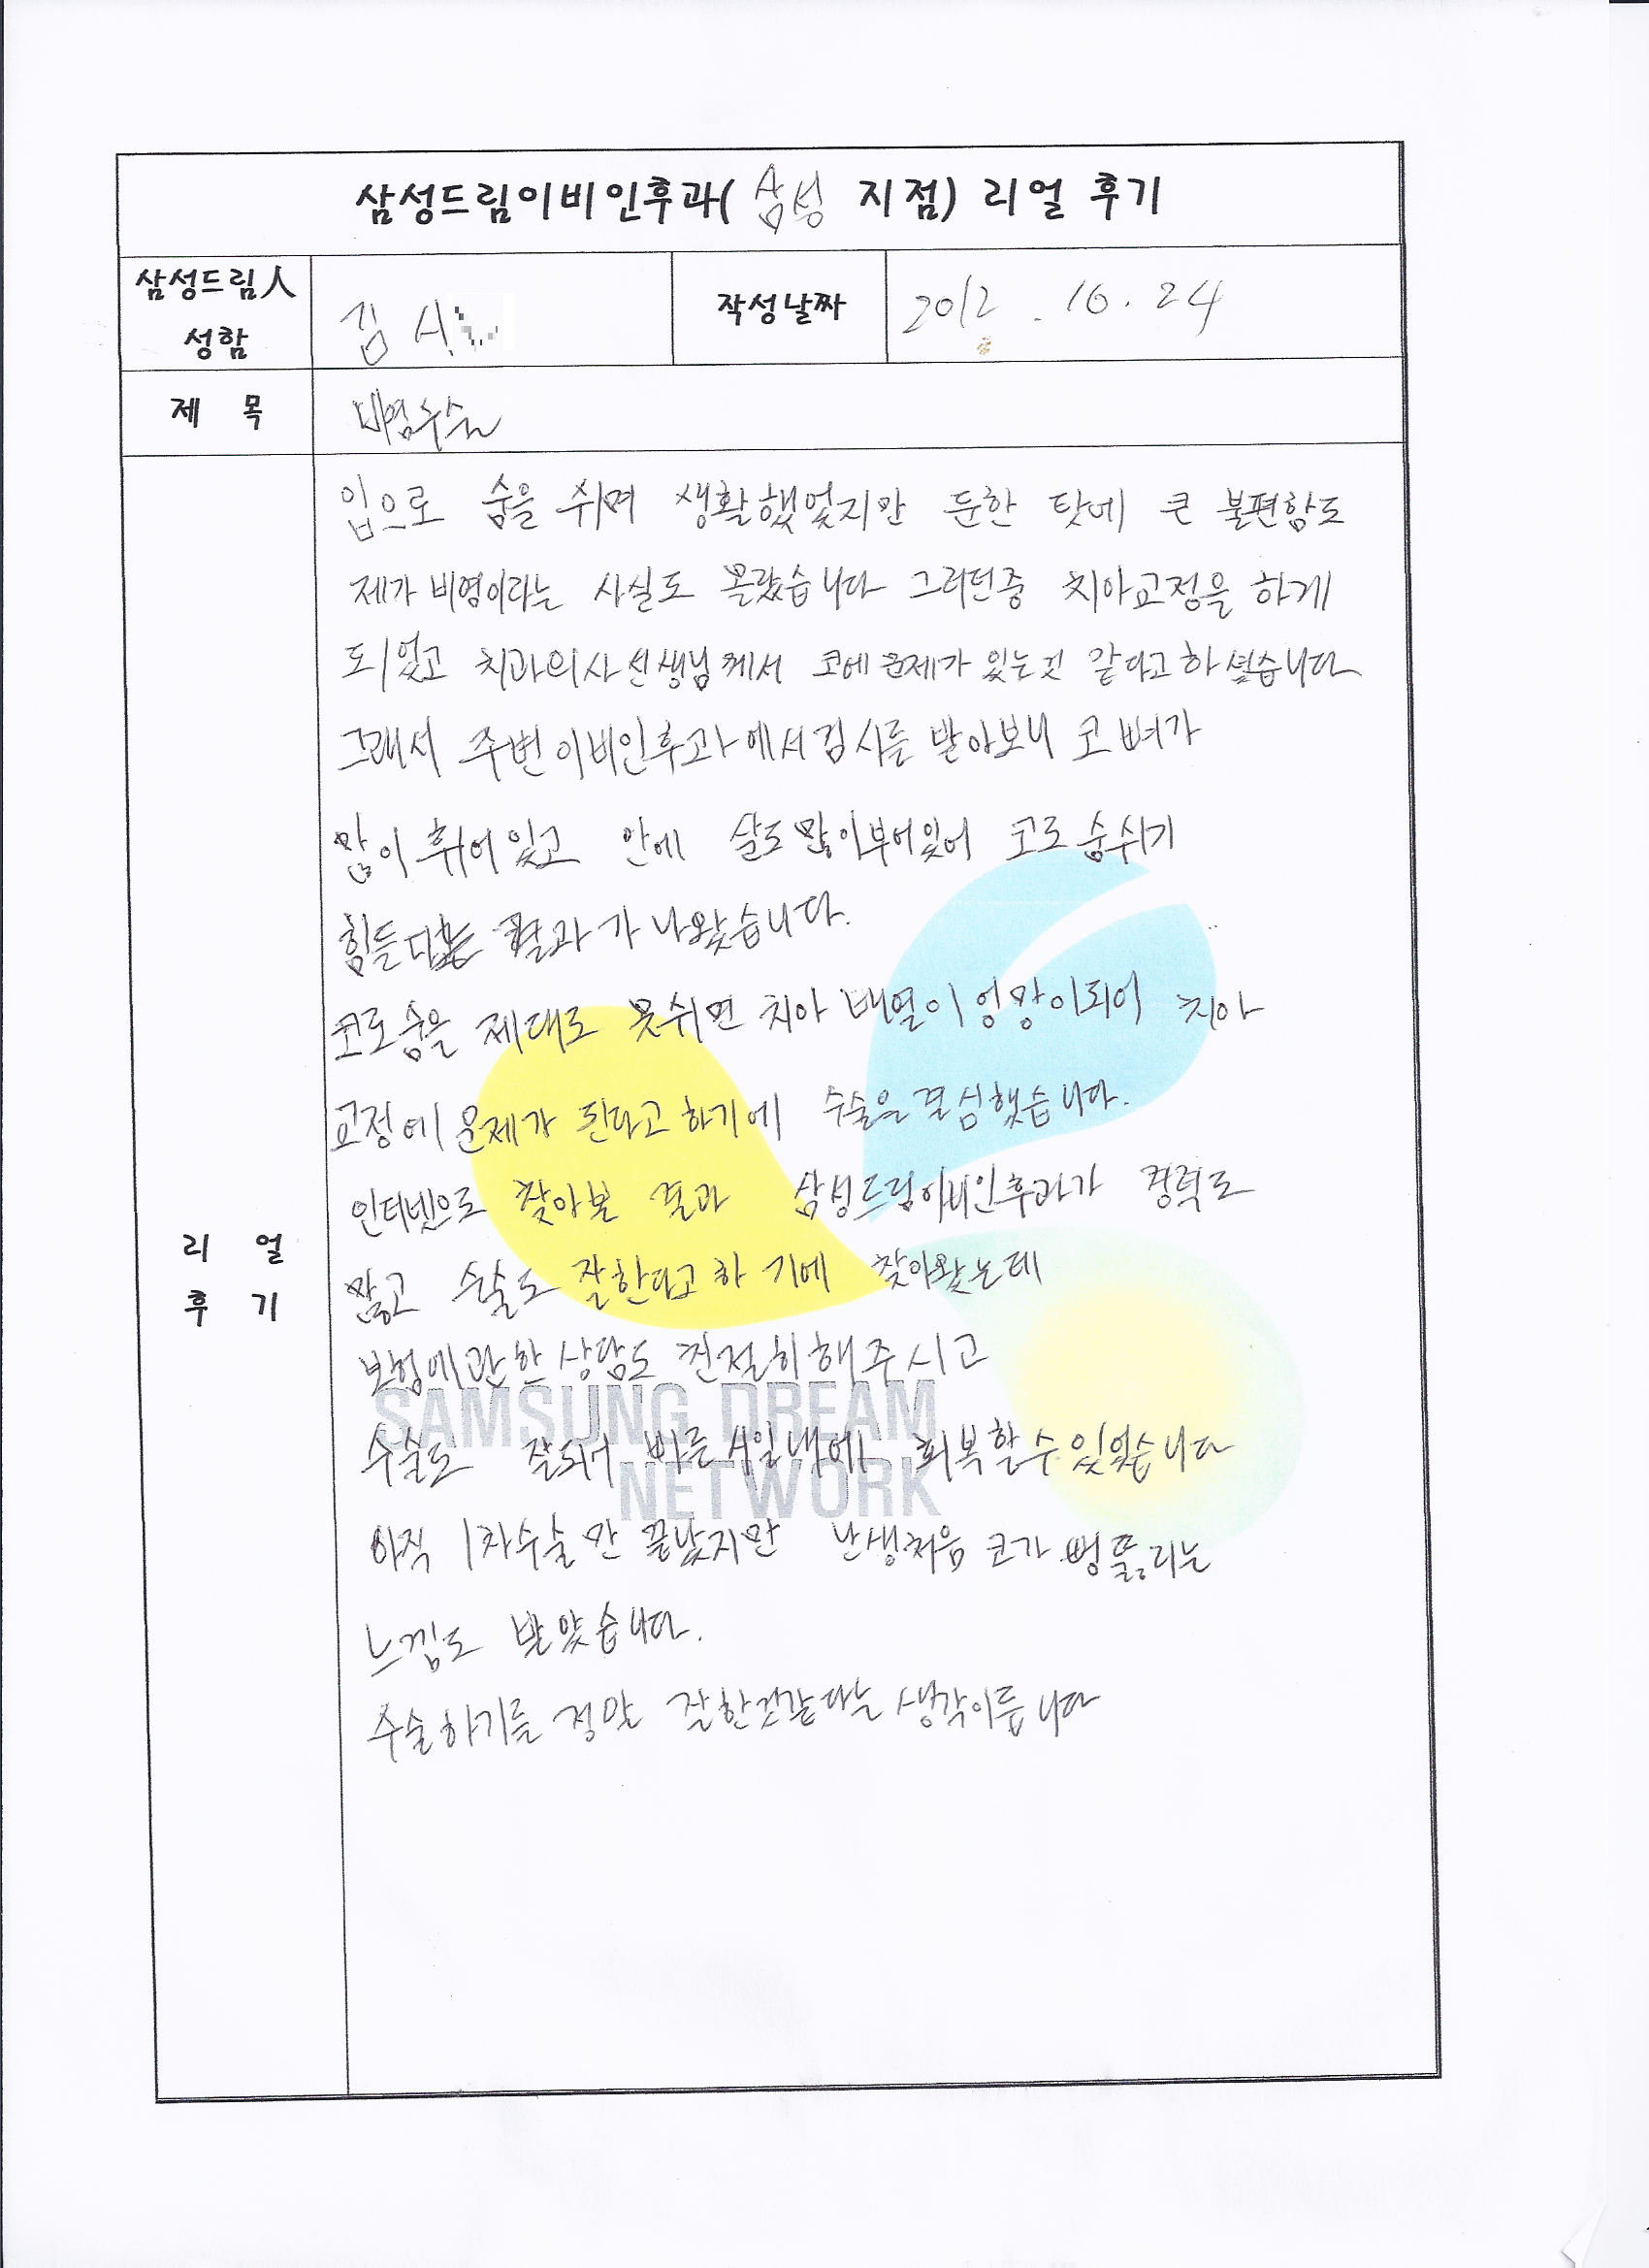 삼성드림이비인후과( 삼성 지점) 리얼 후기
삼성드림人 성함
김
작성날짜
2012 . 10. 24
제 목
비염수술
리 얼 후 기
입으로 숨을 쉬며 생활했었지만 둔한 탓에 큰 불편함도
제가 비염이라는 사실도 몰랐습니다 그러던중 치아교정을 하게
되었고 치과의사선생님께서 코에 문제가 있는것 같다고하셨습니다
그래서 주변 이비인후과에서검사를 받아보니 코 뼈가
많이 휘어있고 안에 살도많이부어있어 코로 숨쉬기
힘든다는 결과가 나왔습니다.
코로숨을 제대로 못쉬면 치아 배열이 엉망이되어 치아
교정에 문제가 된다고 하기에 수술을결심했습니다.
인터넷으로 찾아본 결과 삼성드림이비인후과가 경력도
많고 수술도 잘한다고 하기에 찾아왔는데
보험에관한 상담도 친절히해주시고
수술도 잘되어 빠른시일내에 회복할수있었습니다
아직 1차수술만 끝났지만 난생처음 코가 뻥뚫리는
느낌도 받았습니다.
수술하기를 정말 잘한것같다는 생각이듭니다
SAMSUNG DREAM
NETWORK